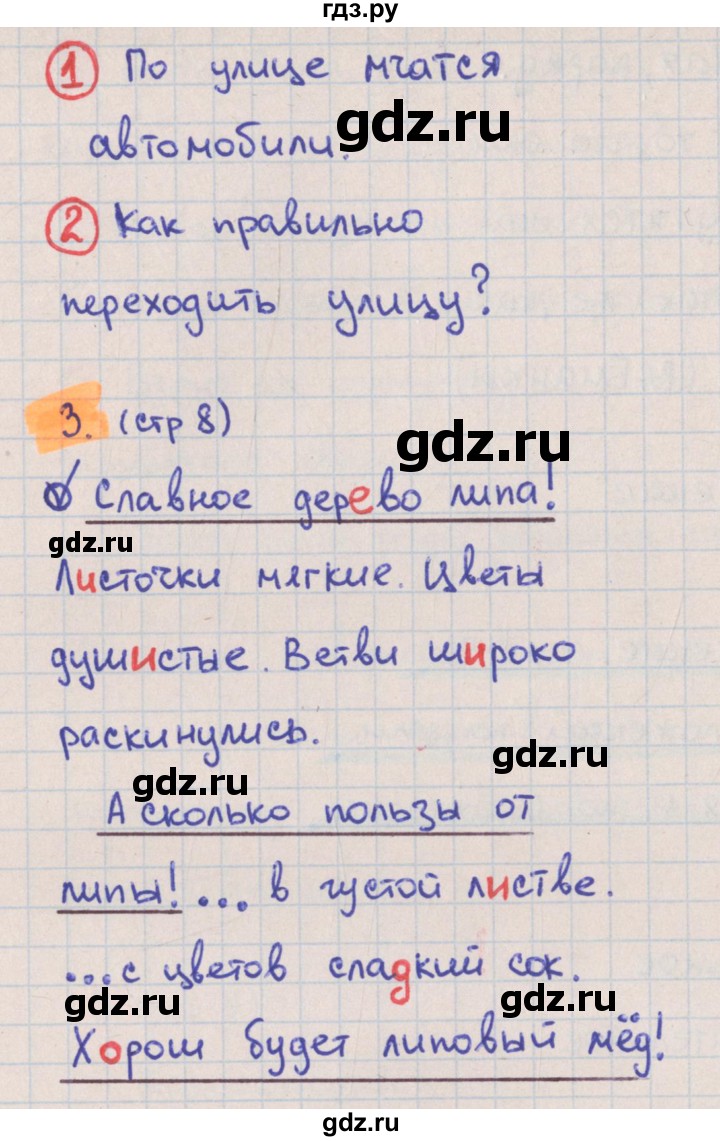 гдз.ру
1 По улице мчатся
gdz.ru
автомобили.
2 Как правильно
переходить улицу?
3. (стр 8)
gdz.ru
Славное дерево липа!
gdz.ru
Листочки мягкие. Цветы
душистые. Ветви широко
раскинулись.
gdz.ru
gdz.ru
А сколько пользы от
липы! ... в густой листве.
... с цветов сладкий сок.
gdz.ru
gdz.ru
Хорош будет липовый мёд!
gdz.ru